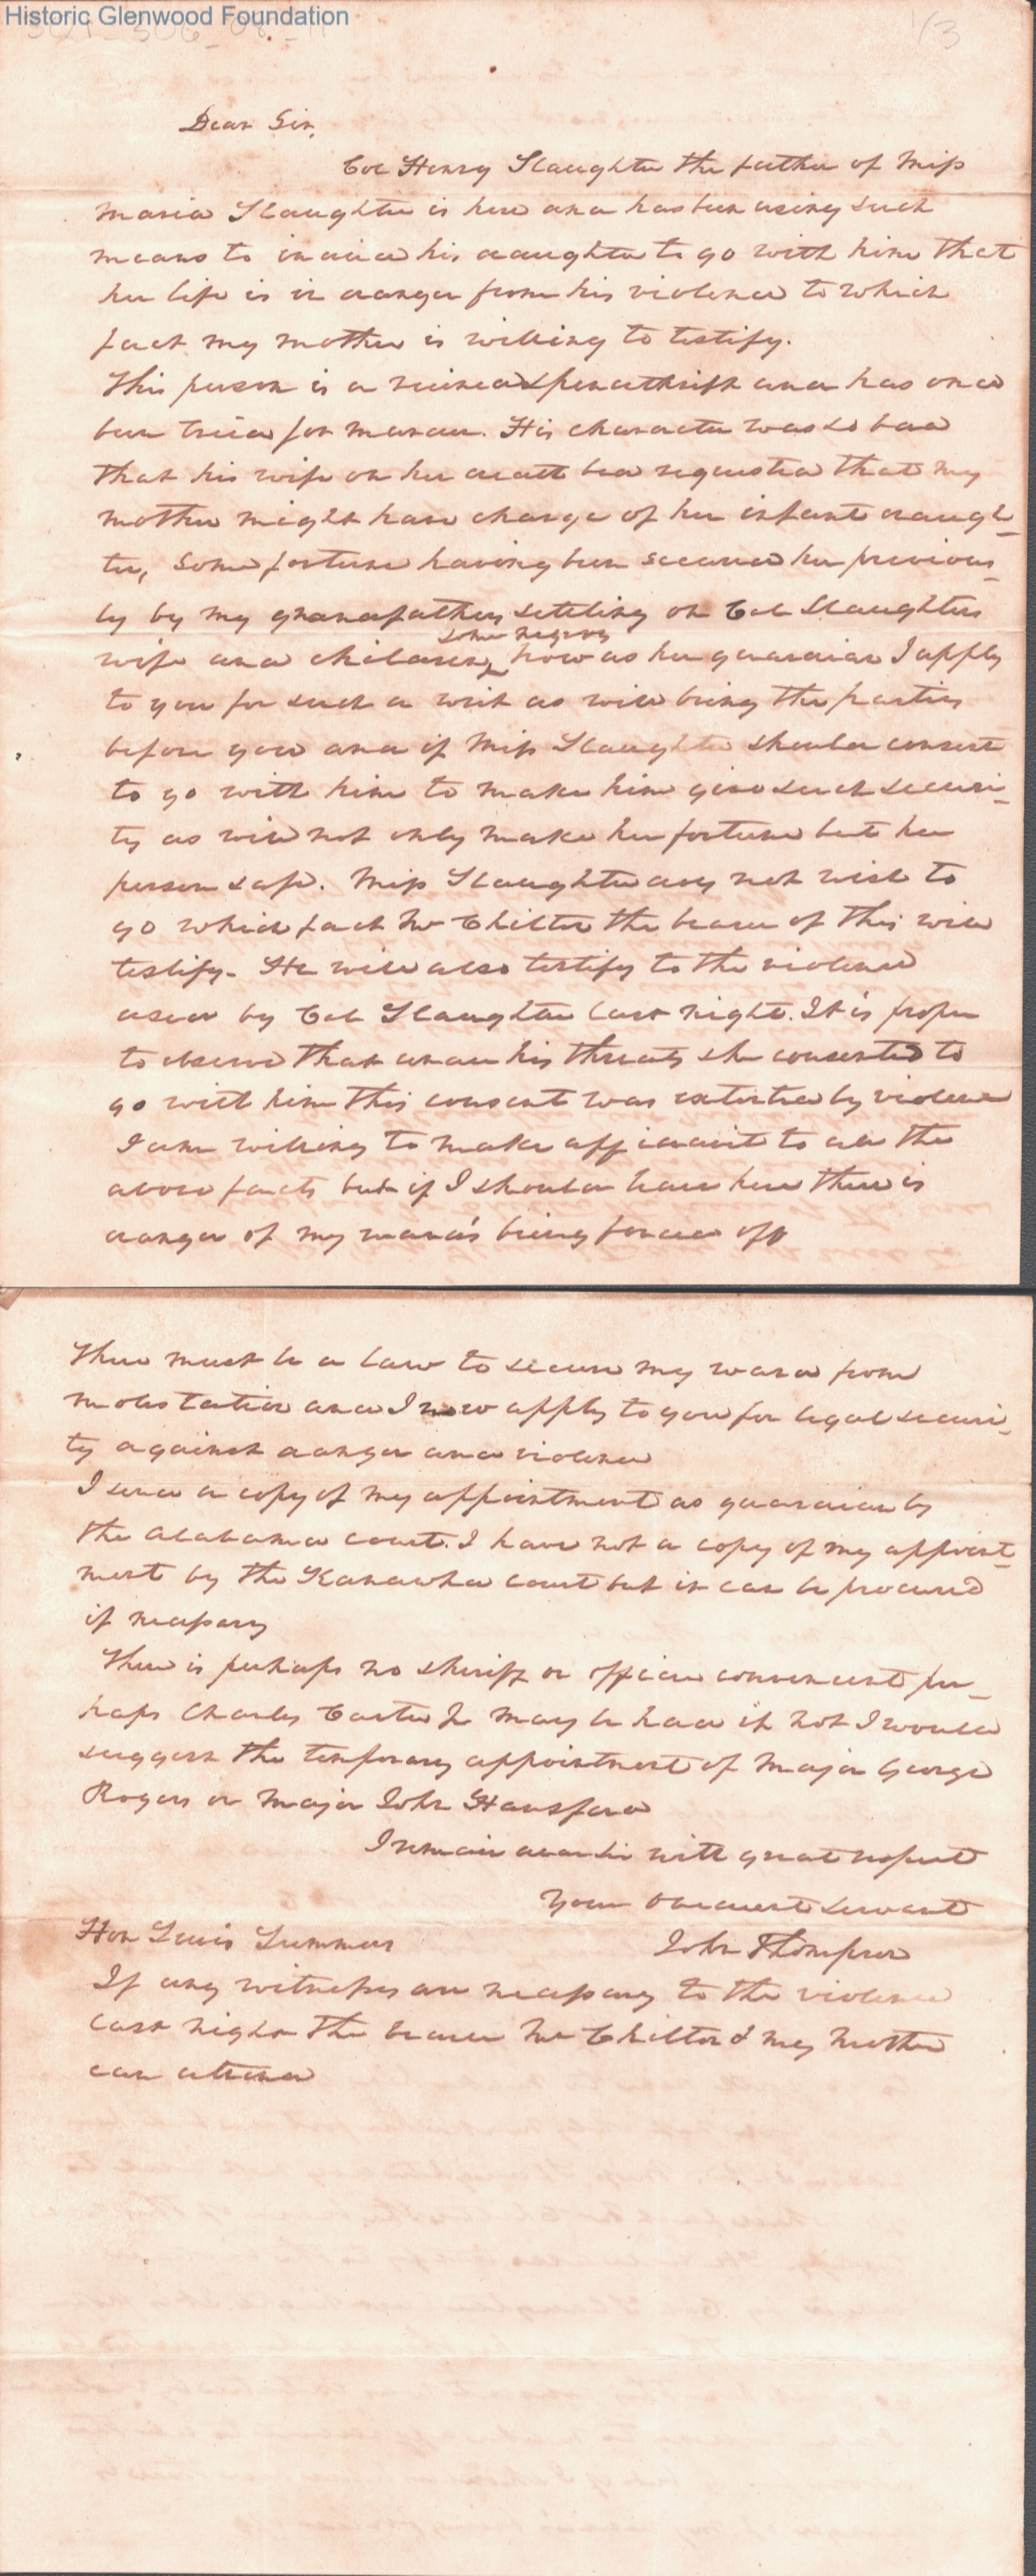 Historic Glenwood Foundation
1/3
Dear Sir,
Col Henry Slaughter the father of Miss
Maria Slaughter is here and has been using such
means to induce his daughter to go with him that
her life is in danger from his violence to which
fact my mother is willing to testify.
This person is a ruined spendthrift and has once
been tried for murder. His character was so bad
that his wife on her death bed requested that my
mother might have charge of her infant daugh-
ter, some fortune having been secured her previous-
ly by my grandfathers settling on Col Slaughters
some negroes
wife and children, now as her guardian I apply
to you for such a writ as will bring the parties
before you and if Miss Slaughter should consent
to go with him to make him give such securi-
ty as will not only make her fortune but her
person safe. Miss Slaughter does not wish to
go which fact Mr Chilton the bearer of this will
testify. He will also testify to the violence
used by Col Slaughter last night. It is proper
to observe that under his threats she consented to
go with him this consent was extorted by violence
I am willing to make affidavit to all the
above facts but if I should leave here there is
danger of my ward's being forced off
There must be a law to secure my ward from
molestation and I now apply to you for legal securi-
ty against danger and violence
I send a copy of my appointment as guardian by
the Alabama court. I have not a copy of my appoint-
ment by the Kanawha court but it can be procured
if necessary
There is perhaps no sheriff or officer convenient per-
haps Charles Carter Jr may be had if not I would
suggest the temporary appointment of Major George
Rogers or Major John Hansford
I remain dear sir with great respect
Your obedient servant
Hon Lewis Summers
John Thompson
If any witnesses are necessary to the violence
last night the bearer Mr Chilton & my mother
can attend